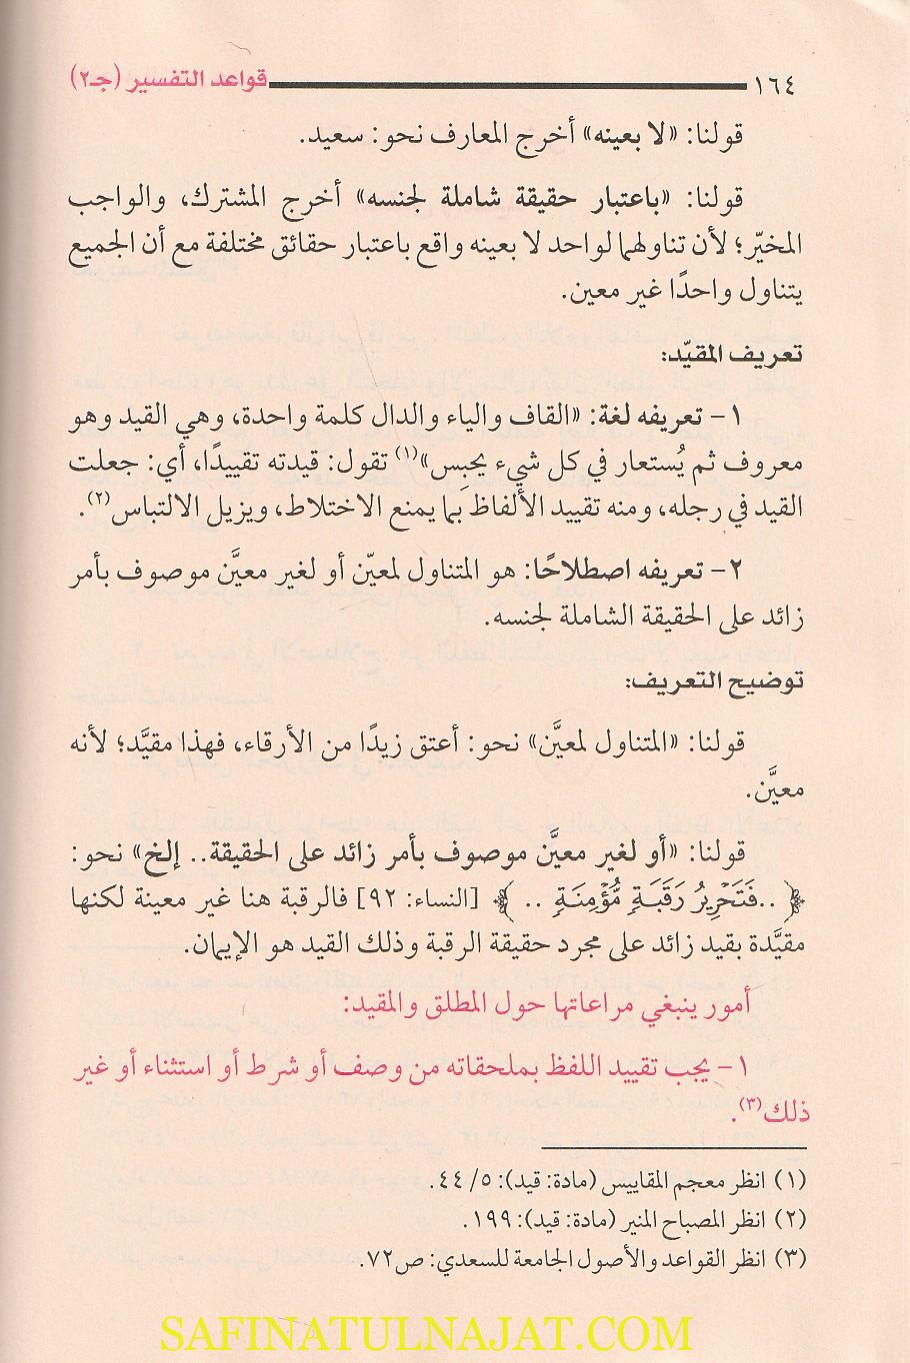 ١٦٤ قواعد التفسير (جـ٢)
قولنا: «لا بعينه» أخرج المعارف نحو: سعيد.
قولنا: «باعتبار حقيقة شاملة لجنسه» أخرج المشترك، والواجب
المخيّر؛ لأن تناولهما لواحد لا بعينه واقع باعتبار حقائق مختلفة مع أن الجميع
يتناول واحدًا غير معين.
تعريف المقيّد:
١- تعريفه لغة: «القاف والياء والدال كلمة واحدة، وهي القيد وهو
معروف ثم يُستعار في كل شيء يحبِس»(١) تقول: قيدته تقييدًا، أي: جعلت
القيد في رجله، ومنه تقييد الألفاظ بما يمنع الاختلاط، ويزيل الالتباس(٢).
٢- تعريفه اصطلاحًا: هو المتناول لمعيّن أو لغير معيَّن موصوف بأمر
زائد على الحقيقة الشاملة لجنسه.
توضيح التعريف:
قولنا: «المتناول لمعيَّن» نحو: أعتق زيدًا من الأرقاء، فهذا مقيَّد؛ لأنه
معيَّن.
قولنا: «أو لغير معيَّن موصوف بأمر زائد على الحقيقة.. إلخ» نحو:
﴿ ..فَتَحْرِيرُ رَقَبَةٍ مُّؤْمِنَةٍ .. ﴾ [النساء: ٩٢] فالرقبة هنا غير معينة لكنها
مقيَّدة بقيد زائد على مجرد حقيقة الرقبة وذلك القيد هو الإيمان.
أمور ينبغي مراعاتها حول المطلق والمقيد:
١- يجب تقييد اللفظ بملحقاته من وصف أو شرط أو استثناء أو غير
ذلك(٣).
(١) انظر معجم المقاييس (مادة: قيد): ٥/ ٤٤.
(٢) انظر المصباح المنير (مادة: قيد): ١٩٩.
(٣) انظر القواعد والأصول الجامعة للسعدي: ص٧٢.
SAFINATULNAJAT.COM